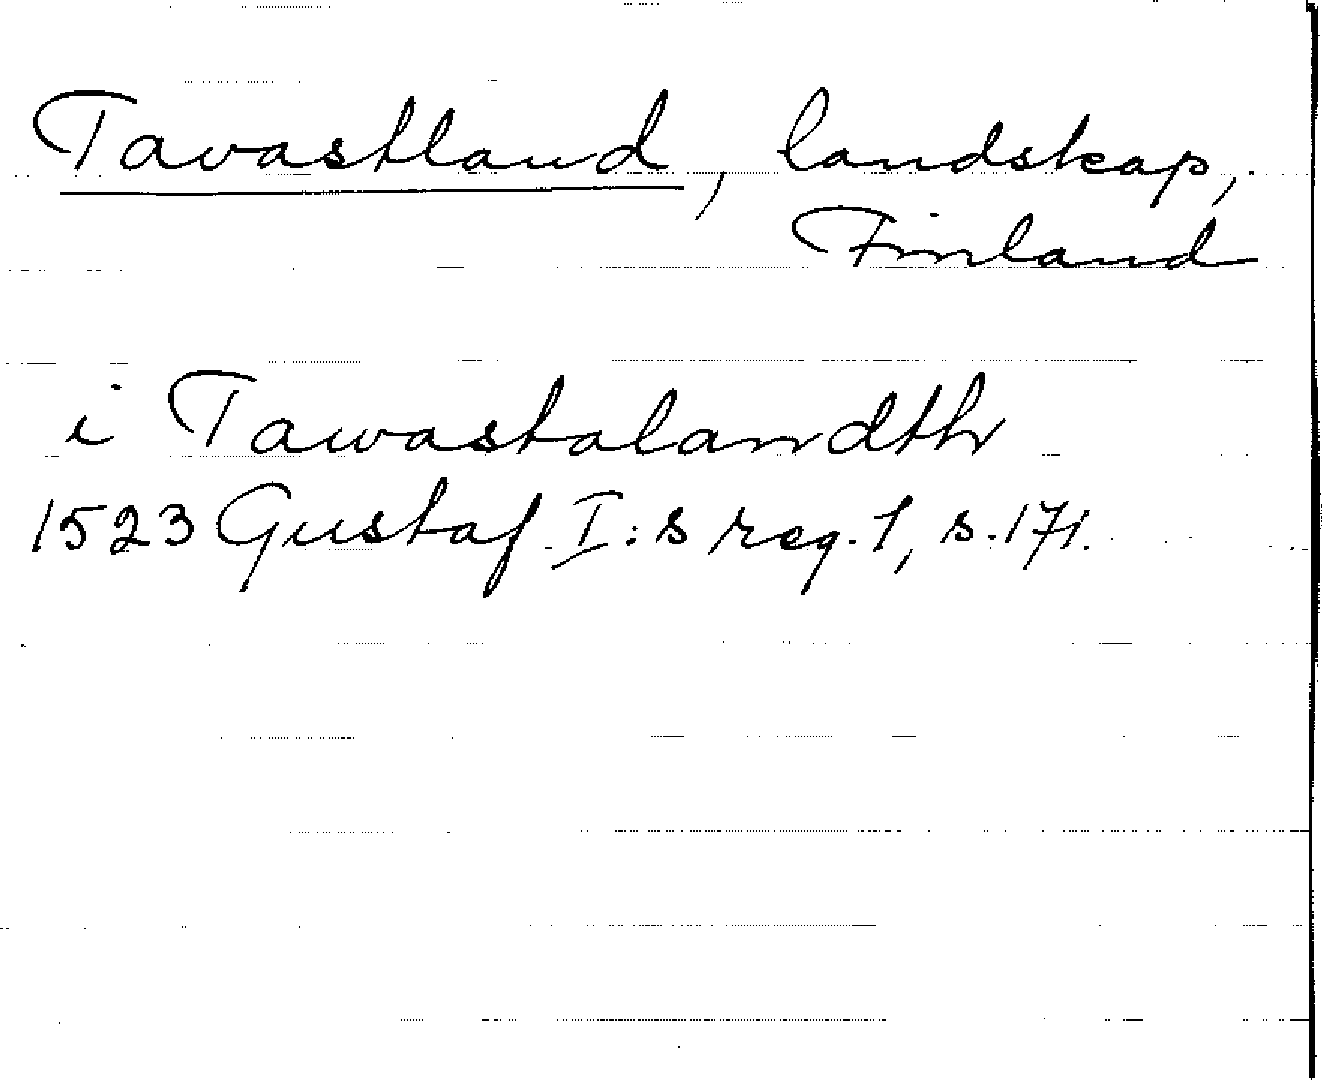 Tavastland, landskap,
Finland
i Tawastalandth
1523 Gustaf I:s reg. 1, s. 171.